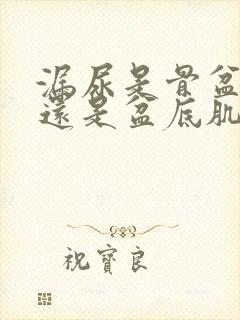 漏尿是骨盆
還是盆底肌
祝寶良